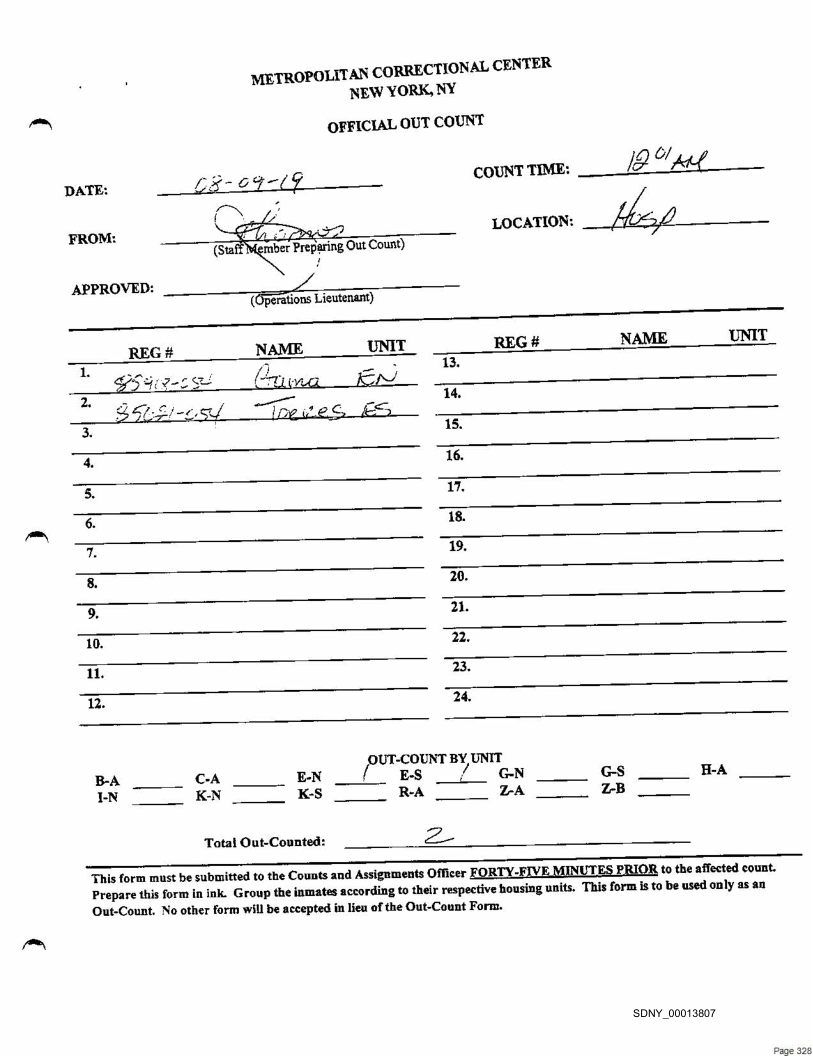 METROPOLITAN CORRECTIONAL CENTER
NEW YORK, NY
OFFICIAL OUT COUNT
DATE: 08-09-19
COUNT TIME: 12 01 AM
FROM:
(Staff Member Preparing Out Count)
LOCATION: Hosp
APPROVED:
(Operations Lieutenant)
REG # NAME UNIT REG # NAME UNIT
1. EN 13.
2. -054 ES 14.
3. 15.
4. 16.
5. 17.
6. 18.
7. 19.
8. 20.
9. 21.
10. 22.
11. 23.
12. 24.
OUT-COUNT BY UNIT
B-A C-A E-N / E-S / G-N G-S H-A
I-N K-N K-S R-A Z-A Z-B
Total Out-Counted: 2
This form must be submitted to the Counts and Assignments Officer FORTY-FIVE MINUTES PRIOR to the affected count.
Prepare this form in ink. Group the inmates according to their respective housing units. This form is to be used only as an
Out-Count. No other form will be accepted in lieu of the Out-Count Form.
SDNY_00013807
Page 328